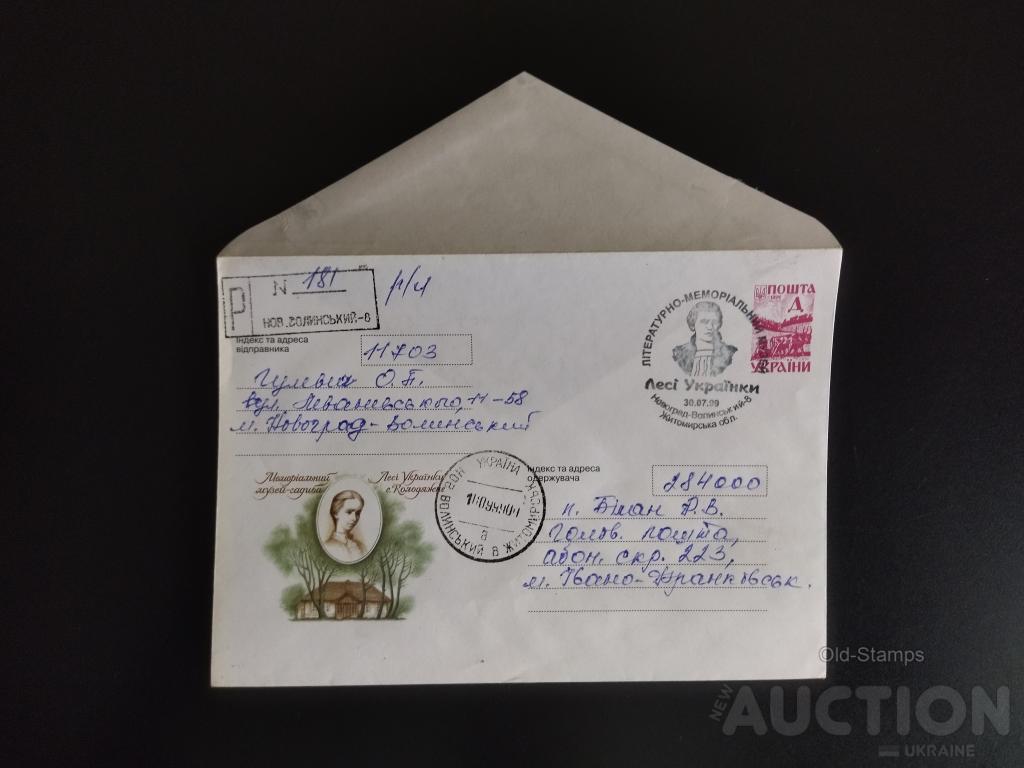 Р N 181 р/ч
НОВ.ВОЛИНСЬКИЙ-8
Індекс та адреса
відправника
11703
О. П.
вул.
м. Новоград-Волинський
Меморіальний Лесі Українки
музей-садиба с. Колодяжне
УКРАЇНА
НОВ.ВОЛИНСЬКИЙ 8 ЖИТОМИРСЬК
а
ЛІТЕРАТУРНО-МЕМОРІАЛЬНИЙ
Лесі Українки
30.07.99
Новоград-Волинський-8
Житомирська обл.
ПОШТА
Д
УКРАЇНИ
Індекс та адреса
одержувача
284000
п. Р. В.
Голов. пошта,
абон. скр. 223,
м. Івано-Франківськ.
©Old-Stamps
NEW AUCTION
UKRAINE